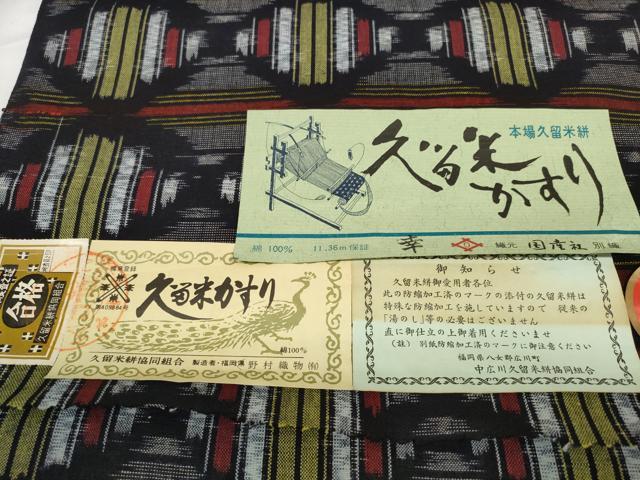 本場久留米絣
久留米かすり
綿 100%
11.36m保証
幸
織元 国産社 別織
合格
久留米絣協同組合
商標登録
第409864号
久留米かすり
綿100%
久留米絣協同組合
製造者・福岡県 野村織物(有)
御知らせ
久留米絣御愛用者各位
此の防縮加工済のマークの添付の久留米絣は
特殊な防縮加工を施していますので 従来の
「湯のし」等の必要はございません
直に御仕立の上御着用くださいませ
(註) 別紙防縮加工済のマークに御注意ください
福岡県八女郡広川町
中広川久留米絣協同組合